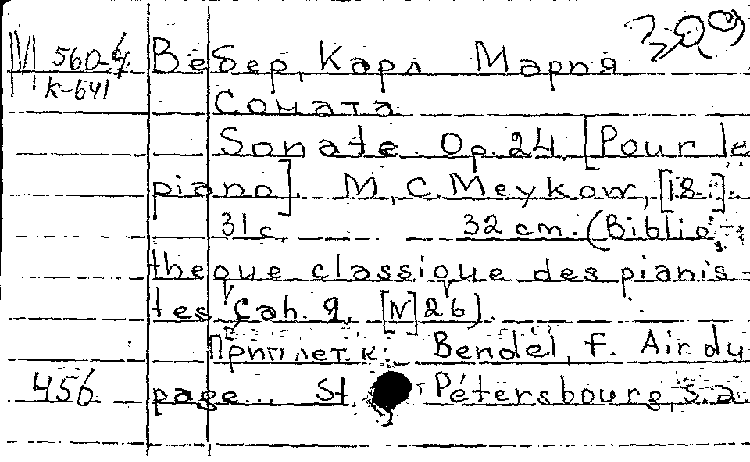 309
М 560-4 Вебер, Карл Мария
К-641
Соната
Sonate. Op. 24. [Pour le
piano]. M., C. Meykow, [18..].
31 с. 32 cm. (Biblio-
theque classique des pianis-
tes Cah. 9. [N] 26).
Приплет. к: Bendel, F. Air du
456 page.. St. Pétersbourg, s.a.